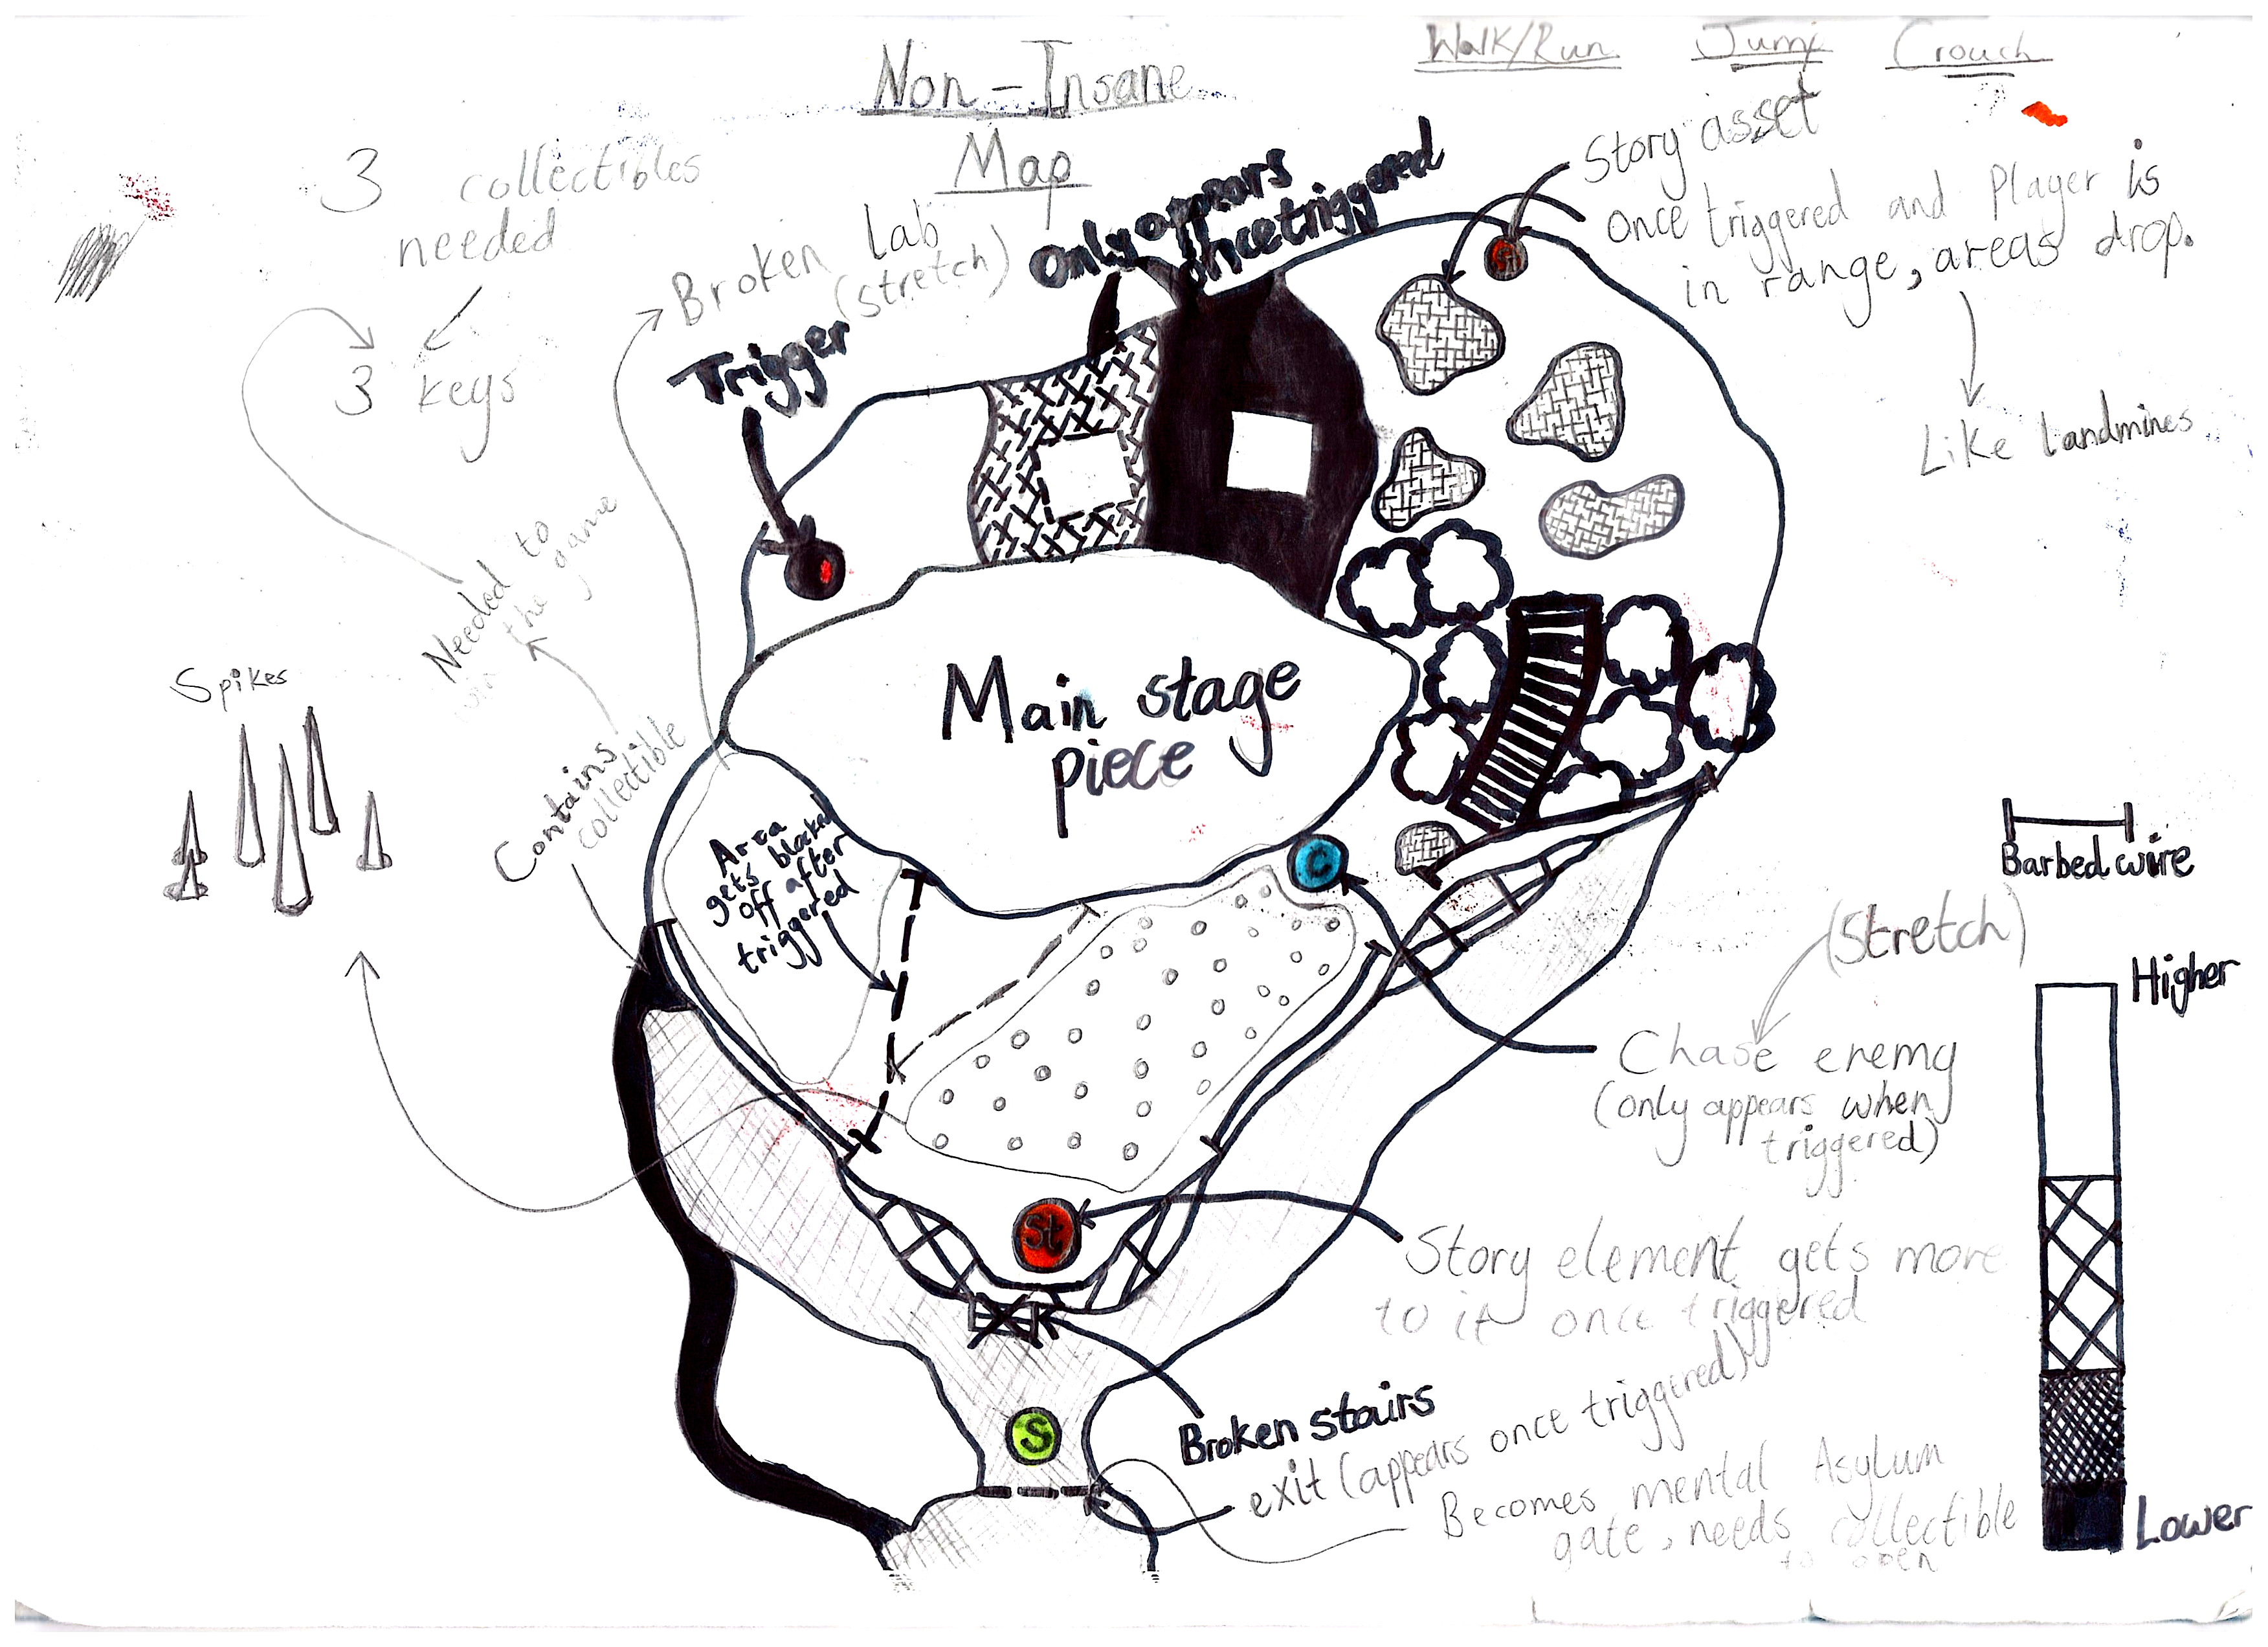 Non-Insane
Map
Walk/Run Jump Crouch
3 collectibles
needed
3 keys
Broken Lab
(stretch)
Only appears
once triggered
Trigger
Story asset
Once triggered and Player is
in range, areas drop.
Like landmines
St
Needed to
the game
Contains
collectible
Spikes
Main stage
piece
Area
gets blocked
off after
triggered
C
Barbed wire
(Stretch)
Chase enemy
(only appears when
triggered)
Higher
Lower
St
Story element gets more
to it once triggered
Broken stairs
S
exit (appears once triggered)
Becomes mental Asylum
gate, needs collectible
to open